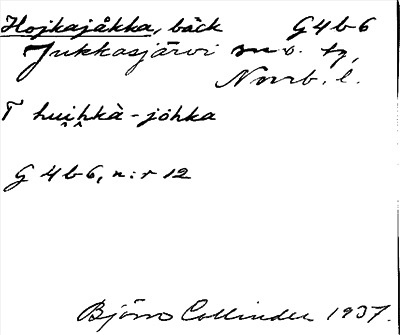 Hojkajåkka, bäck G4b6
Jukkasjärvi sn o. tg,
Norrb. l.
T huihkà-jöhka
G 4b6, n:r 12
Björn Collinder 1937.